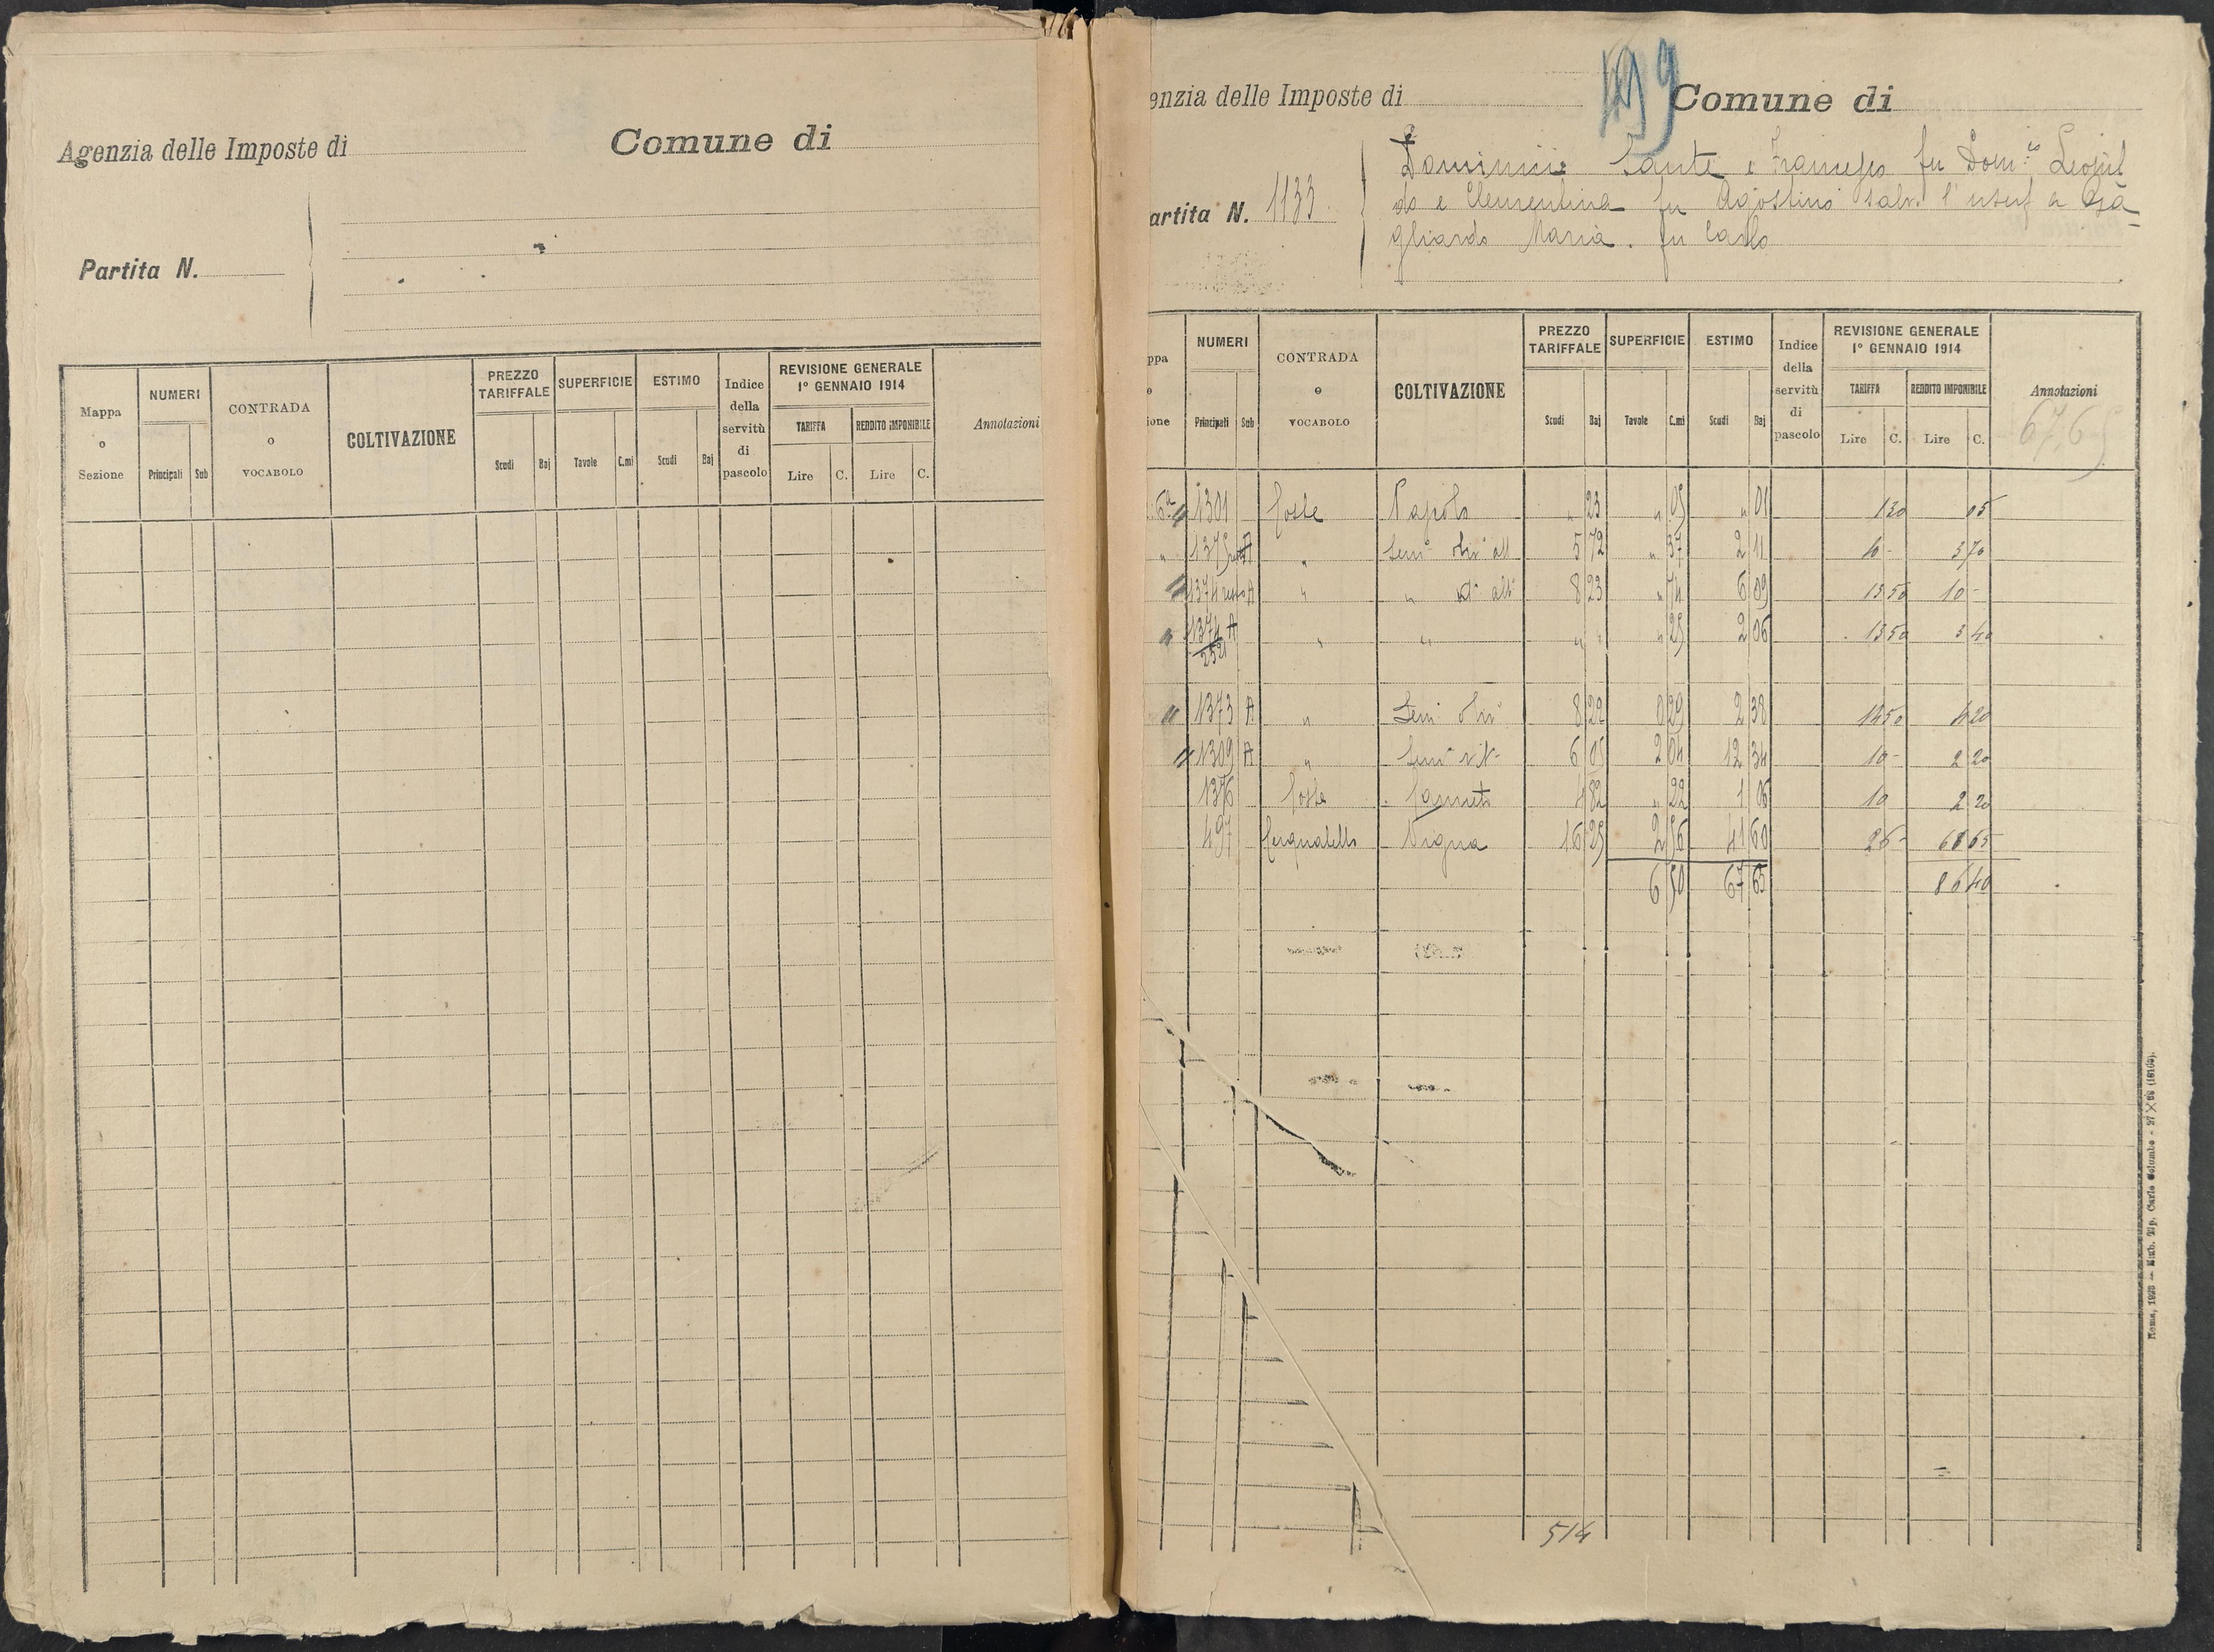 Agenzia delle Imposte di
Comune di
Partita N.
Mappa o Sezione
NUMERI
Principali
Sub
CONTRADA o VOCABOLO
COLTIVAZIONE
PREZZO TARIFFALE
Scudi
Baj
SUPERFICIE
Tavole
C.mi
ESTIMO
Scudi
Baj
Indice della servitù di pascolo
REVISIONE GENERALE
1° GENNAIO 1914
TARIFFA
Lire
C.
REDDITO IMPONIBILE
Lire
C.
Annotazioni
enzia delle Imposte di
Comune di
Dominici Sante e Francesco fu Dom.co Leopol
do e Clementina fu Agostino salv. l'usuf a Ga
artita N. 1133
gliardo Maria. fu Carlo
ppa
o
ione
NUMERI
Principali
Sub
CONTRADA o VOCABOLO
COLTIVAZIONE
PREZZO TARIFFALE
Scudi
Baj
SUPERFICIE
Tavole
C.mi
ESTIMO
Scudi
Baj
Indice della servitù di pascolo
REVISIONE GENERALE
1° GENNAIO 1914
TARIFFA
Lire
C.
REDDITO IMPONIBILE
Lire
C.
Annotazioni
67,65
6a 1301 23 " 05 " 01 1 20 05
" A " 5 72 " 37 2 11 10 - 3 70
1374 resto A " " 8 23 " 74 6 09 13 50 10 -
1374 A " " " " " 25 2 06 13 50 3 40
" 1373 A " Sem oliv 8 22 0 29 2 38 14 50 4 20
" 1309 A " Sem vit 6 05 2 04 12 34 10 - 2 20
1376 Canneto 4 82 " 22 1 06 10 2 20
497 Vigna 16 25 2 56 41 60 26 -
6 50 67 65 86 40
514
Roma, 1923 — Stab. Tip. Carlo Colombo - 27 X 98